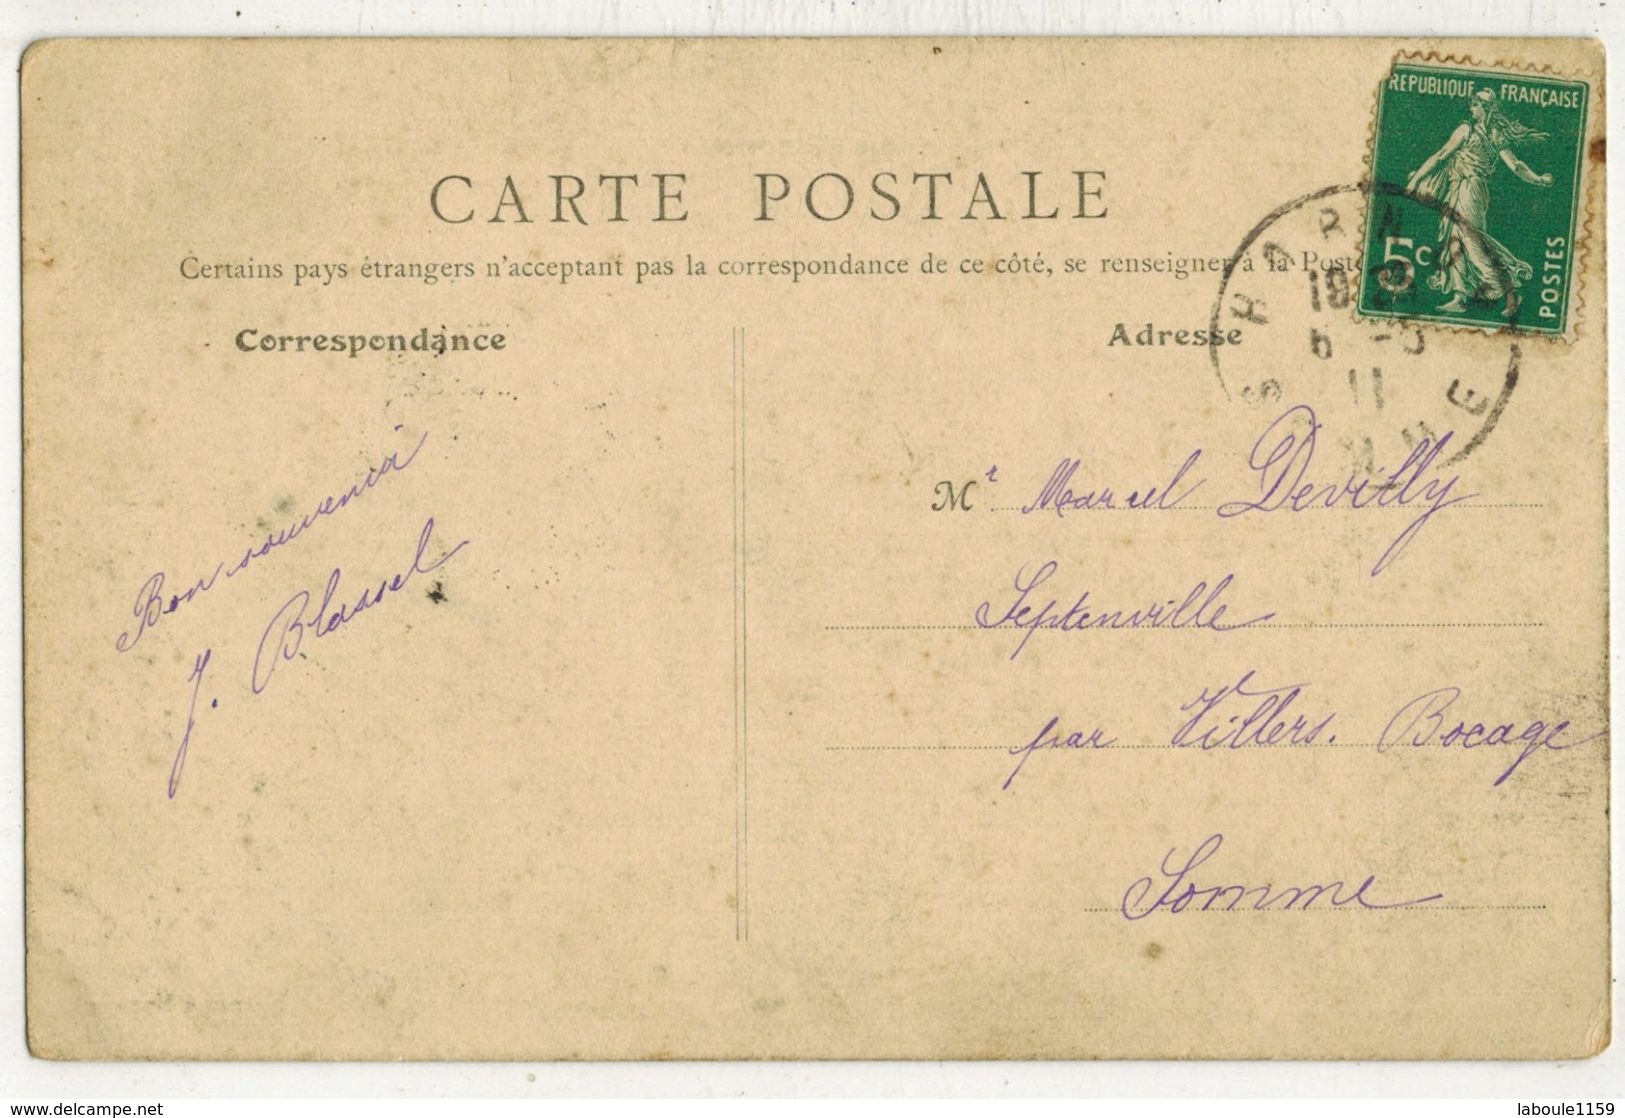 REPUBLIQUE FRANÇAISE
5c
POSTES
CARTE POSTALE
Certains pays étrangers n'acceptant pas la correspondance de ce côté, se renseigner à la Poste
Correspondance
Adresse
11
Bon souvenir
J. Blassel
Mr. Marcel Devilly
Septenville
par Villers. Bocage
Somme
www.delcampe.net
laboule1159